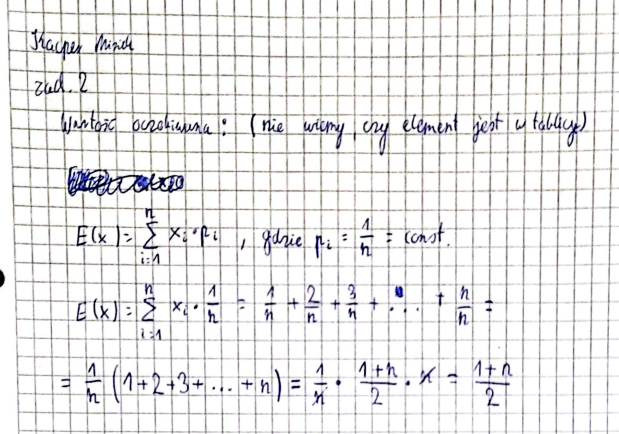 Kacper
zad. 2
Wartość oczekiwana: (nie wiemy, czy element jest w tablicy)
E(x) = n∑i=1 xi · pi , gdzie pi = 1/n = const.
E(x) = n∑i=1 xi · 1/n = 1/n + 2/n + 3/n + ... + n/n =
= 1/n (1+2+3+ ... +n) = 1/n · (1+n)/2 · n = (1+n)/2